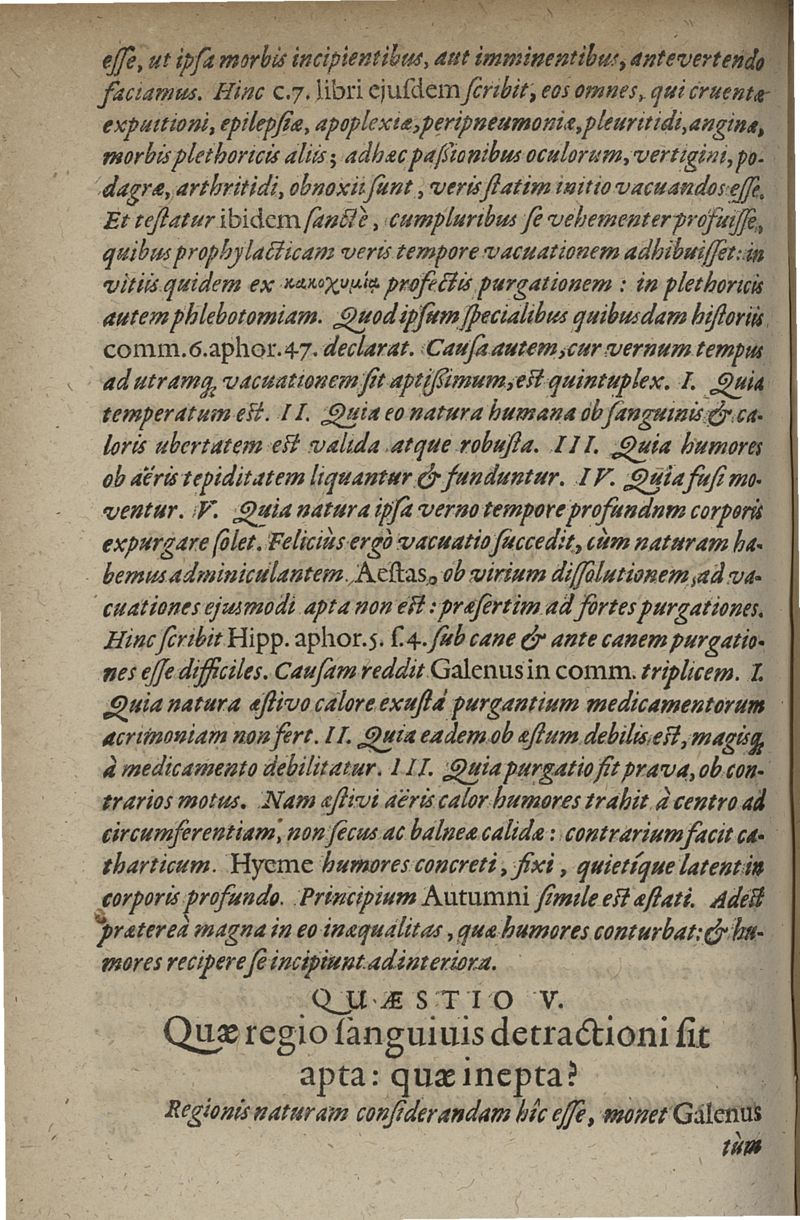 esse, ut ipsa morbis incipientibus, aut imminentibus, antevertendo
faciamus. Hinc c.7. libri ejusdem scribit, eos omnes, qui cruentæ
expuitioni, epilepsiæ, apoplexiæ, peripneumoniæ, pleuritidi, anginæ,
morbis plethoricis aliis; adhæc passionibus oculorum, vertigini, po-
dagræ, arthritidi, obnoxii sunt, veris statim initio vacuandos esse.
Et testatur ibidem sanctè, cumpluribus se vehementer profuisse,
quibus prophylacticam veris tempore vacuationem adhibuisset: in
vitiis quidem ex κακοχυμίᾳ profectis purgationem: in plethoricis
autem phlebotomiam. Quod ipsum specialibus quibusdam historiis
comm.6.aphor.47. declarat. Causa autem, cur vernum tempus
ad utramq; vacuationem sit aptissimum, est quintuplex. I. Quia
temperatum est. II. Quia eo natura humana ob sanguinis & ca-
loris ubertatem est valida atque robusta. III. Quia humores
ob aëris tepiditatem liquantur & funduntur. IV. Quia fusi mo-
ventur. V. Quia natura ipsa verno tempore profundnm corporis
expurgare solet. Feliciùs ergò vacuatio succedit, cùm naturam ha-
bemus adminiculantem. Aestas, ob virium dissolutionem, ad va-
cuationes ejusmodi apta non est: præsertim ad fortes purgationes.
Hinc scribit Hipp. aphor.5. s.4. sub cane & ante canem purgatio-
nes esse difficiles. Causam reddit Galenus in comm. triplicem. I.
Quia natura æstivo calore exusta purgantium medicamentorum
acrimoniam non fert. II. Quia eadem ob æstum debilis est, magisq;
à medicamento debilitatur. III. Quia purgatio fit prava, ob con-
trarios motus. Nam æstivi aëris calor humores trahit à centro ad
circumferentiam, non secus ac balnea calida: contrarium facit ca-
tharticum. Hyeme humores concreti, fixi, quietíque latent in
corporis profundo. Principium Autumni simile est æstati. Adest
præterea magna in eo inæqualitas, quæ humores conturbat: & hu-
mores recipere se incipiunt ad interiora.
QUÆSTIO V.
Quæ regio sanguiuis detractioni sit
apta: quæ inepta?
Regionis naturam considerandam hîc esse, monet Galenus
tùm